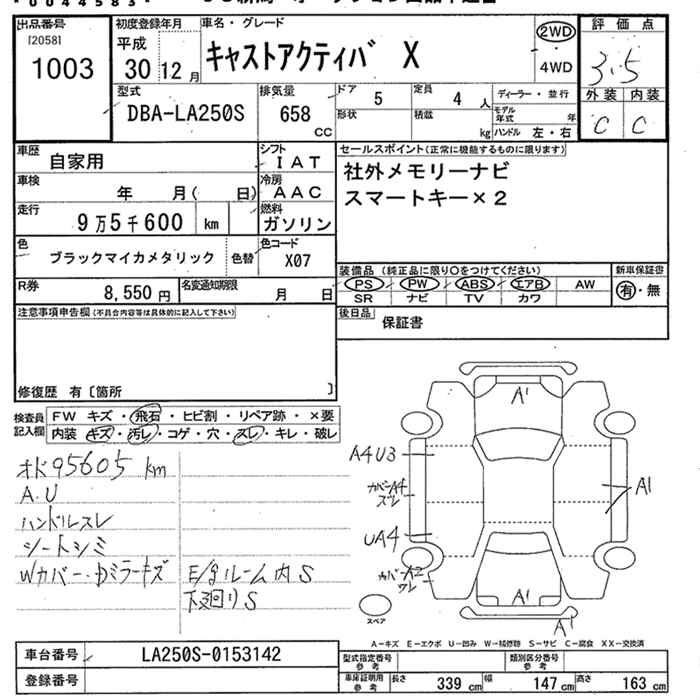 * 0 0 4 4 5 8 3 *
出品番号
[2058]
1003
初度登録年月
平成
30 12 月
車名・グレード
キャストアクティバ X
2WD
4WD
評価点
3.5
外装 内装
C C
型式
DBA-LA250S
排気量
658
CC
ドア
5
定員
4 人
形状
積載
kg
ディーラー・並行
モデル年式 年
ハンドル 左・右
車歴
自家用
シフト
I A T
車検
年 月( 日)
冷房
A A C
走行
9 万 5 千 600 km
燃料
ガソリン
色
ブラックマイカメタリック
色替
色コード
X07
R券
8,550 円
名変通知期限
月 日
セールスポイント(正常に機能するものに限ります)
社外メモリーナビ
スマートキー×2
装備品(純正品に限り○をつけてください)
PS PW ABS エアB AW
SR ナビ TV カワ
新車保証書
有・無
後日品
保証書
注意事項申告欄(不具合内容等は具体的に記入して下さい)
修復歴 有〔箇所 〕
検査員記入欄
FW キズ・飛石・ヒビ割・リペア跡・×要
内装 キズ・汚レ・コゲ・穴・スレ・キレ・破レ
オド95605 km
A.U
ハンドルスレ
シートシミ
Wカバー・ドミラーキズ
E/gルーム内 S
下廻り S
A1
A4U3
カバーA4
スレ
A1
UA4
カバーA2
ワレ
A1
A1
スペア
A－キズ E－エクボ U－凹み W－補修跡 S－サビ C－腐食 XX－交換済
車台番号
LA250S-0153142
登録番号
型式指定番号 参考
類別区分番号 参考
車庫証明用 参考
長さ 339 cm 幅 147 cm 高さ 163 cm